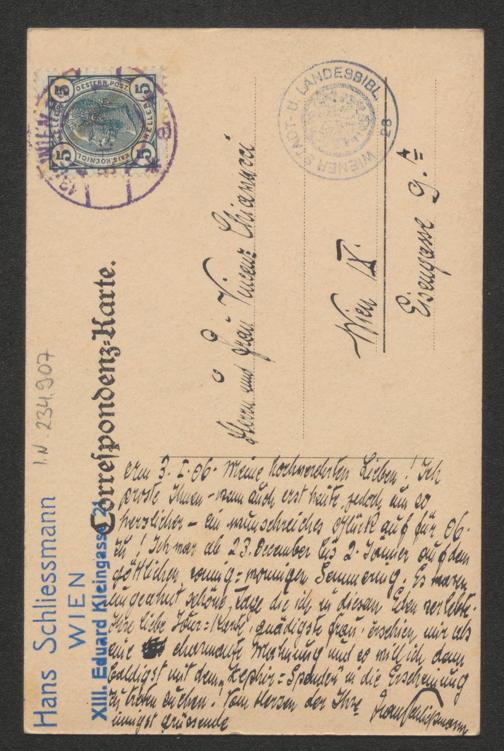 OESTERR. POST
5
5
5
5
KAIS. KOENIGL.
WIEN
WIENER STADT- U. LANDESBIBL.
Correspondenz-Karte.
Herrn und Frau Vincenz Chiavacci
Wien IX.
Eisengasse 9.
Hans Schliessmann
WIEN
XIII. Eduard Kleingasse 21
I.N. 234.907
3. I. 06. Meine hochverehrten Lieben! Ich
Ihnen – wenn auch erst heute, jedoch um so
herzlicher – ein Glück auf für 06
zu! Ich war ab 23. December bis 2. Jänner auf dem
göttlichen, sonnig-wonnigen Semmering. Es waren
ungeahnt schöne Tage die ich in diesem Eden verlebte.
Ihre liebe Karte, gnädigste Frau, erschien mir als
eine charmante Mahnung und so will ich denn
baldigst mit dem in die Erscheinung
zu treten suchen! Vom Herzen der Ihre
innigst grüssende